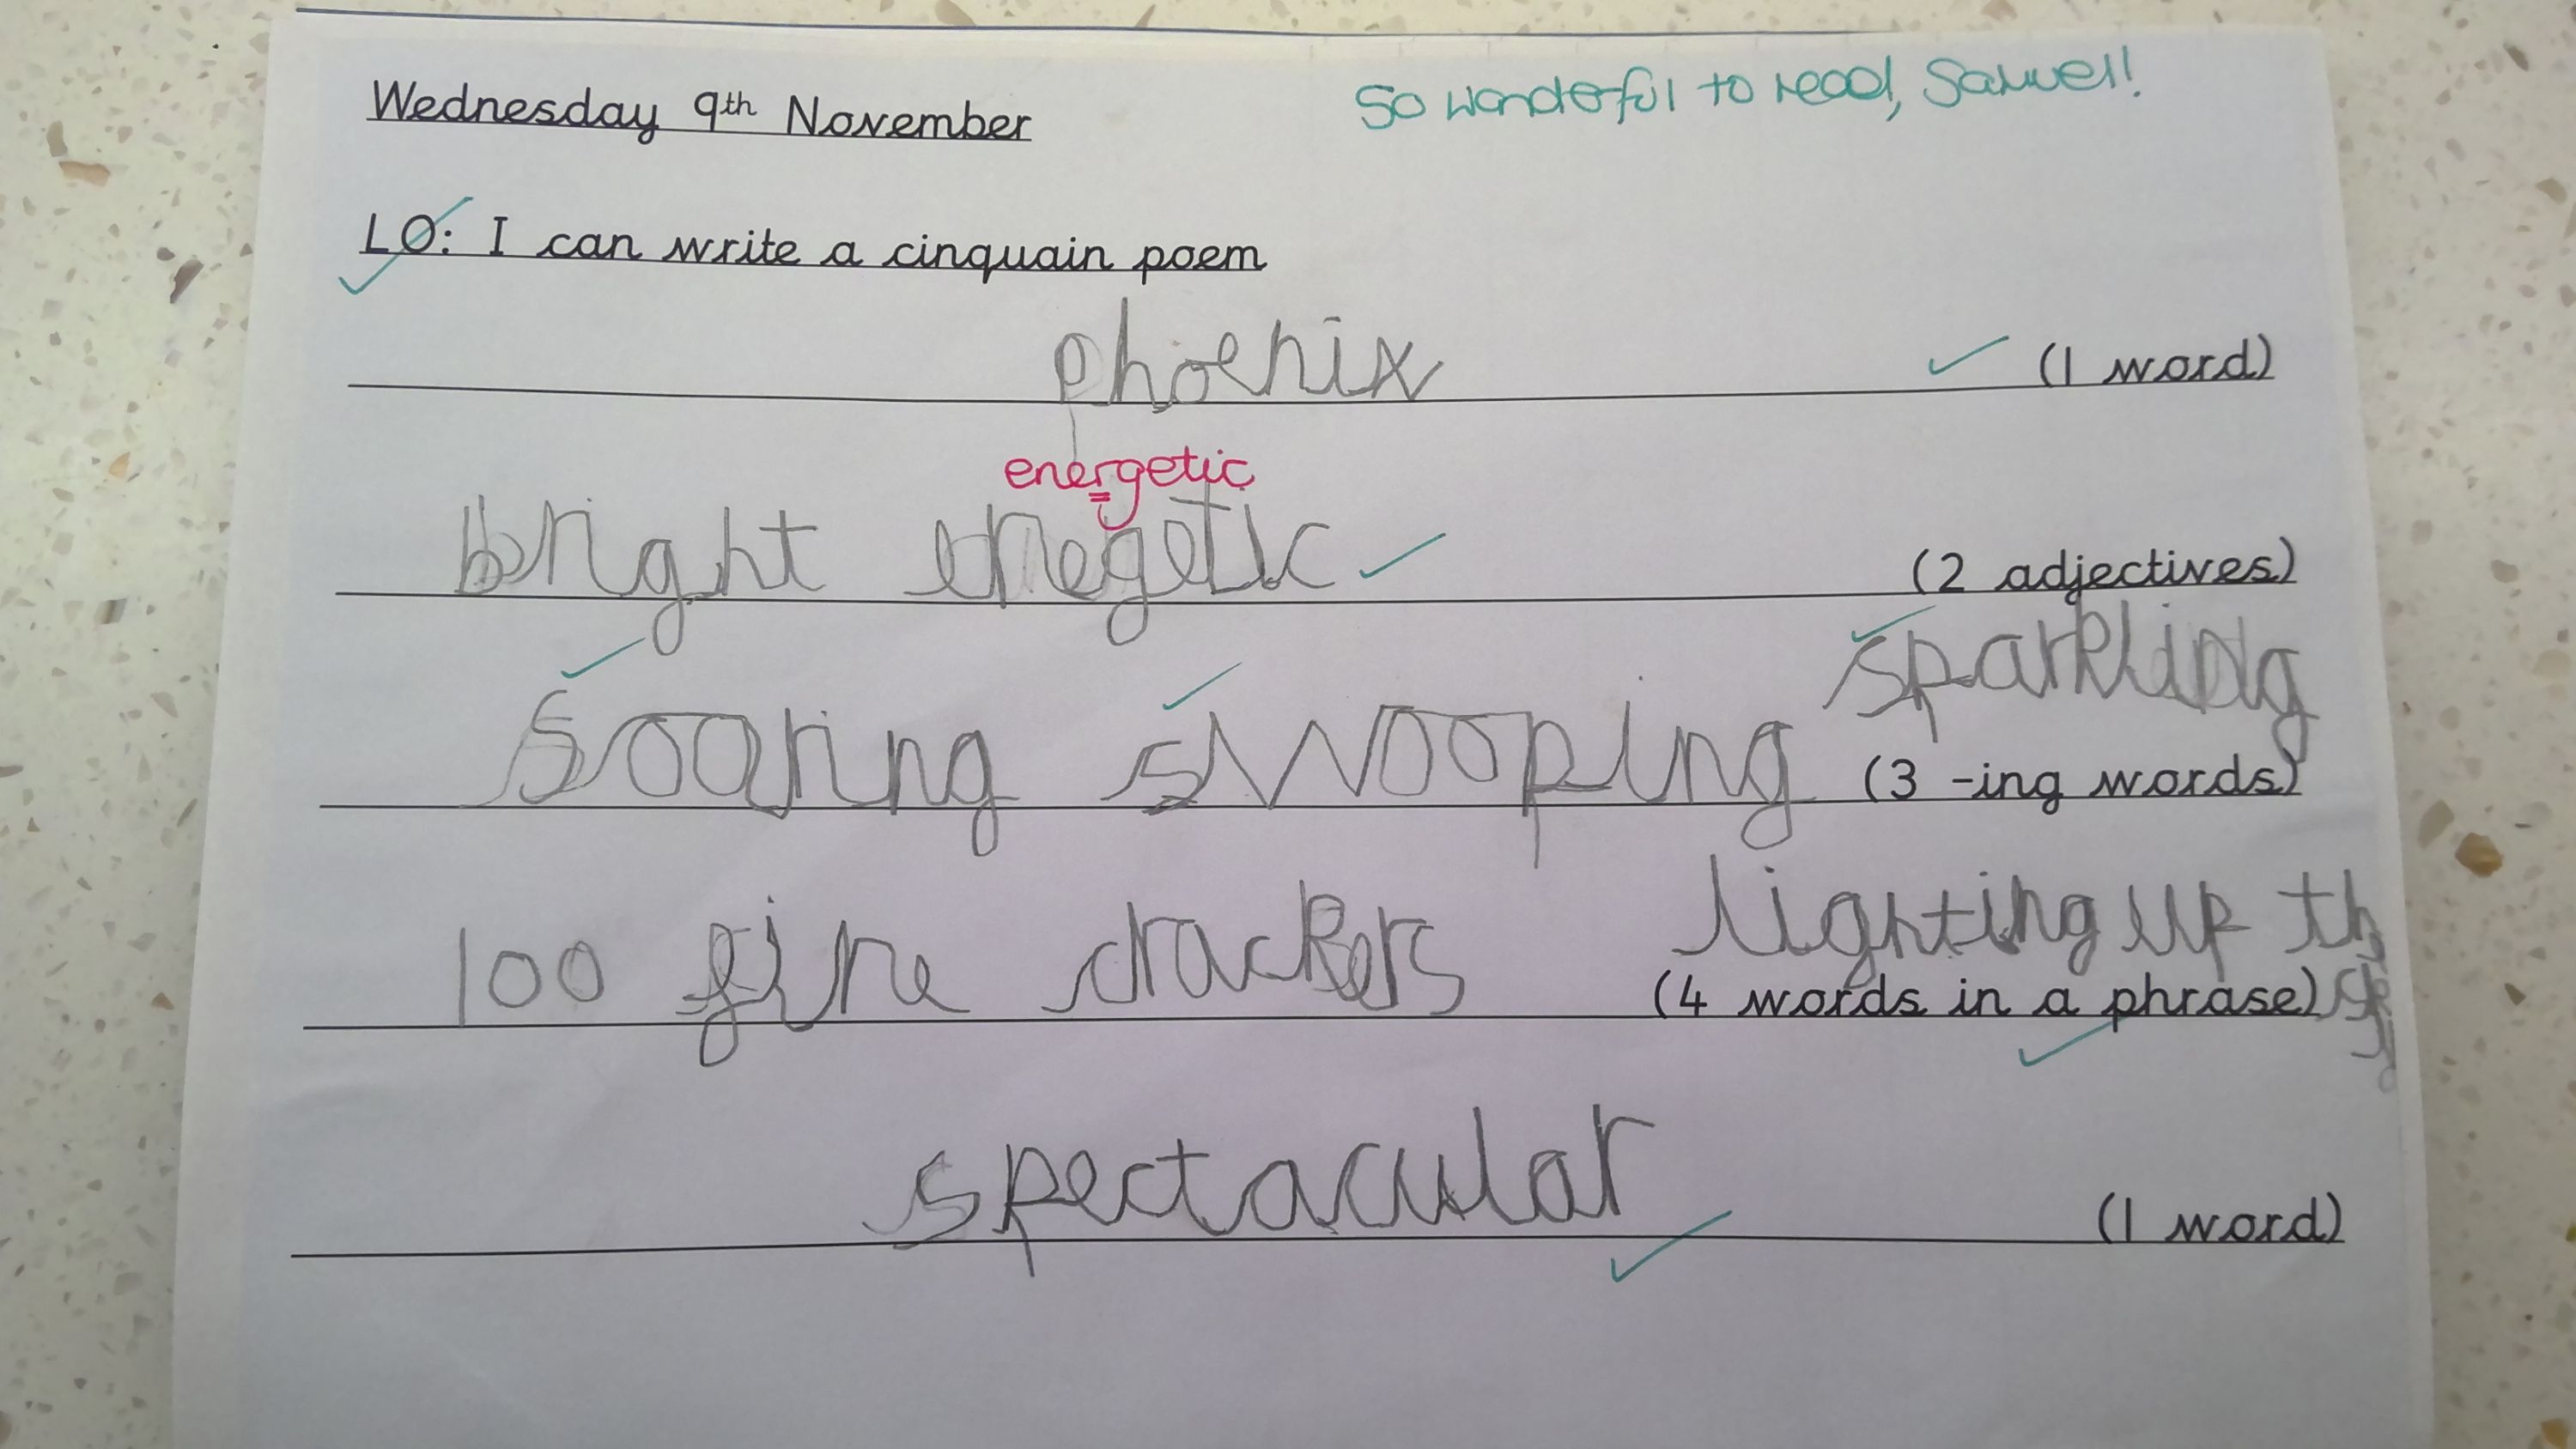 Wednesday 9th November
So wonderful to read, Samuel!
LO: I can write a cinquain poem
phoenix (1 word)
energetic
bright enegetic (2 adjectives)
soaring swooping sparkling
(3 -ing words)
100 fire crackers lighting up the
(4 words in a phrase) sky
spectacular (1 word)